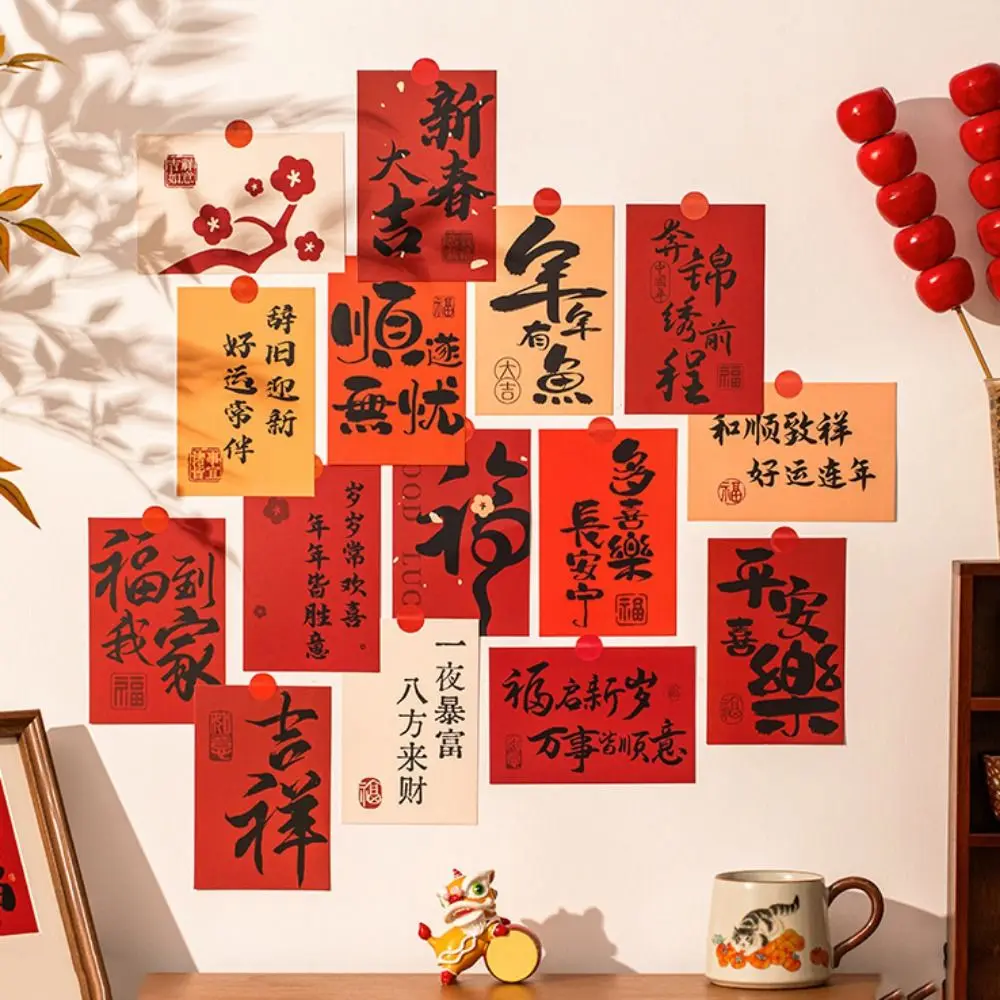 吉祥
如意
新春
大吉
年年
有魚
大吉
奔錦
绣前
程
中國年
福
辞旧迎新
好运常伴
順遂
無忧
福
和顺致祥
好运连年
福
岁岁常欢喜
年年皆胜意
福
OOD LUC
多喜樂
長安宁
福
福到
我家
福
平安
喜樂
福
一夜暴富
八方来财
福
福启新岁
万事皆顺意
吉祥
如意